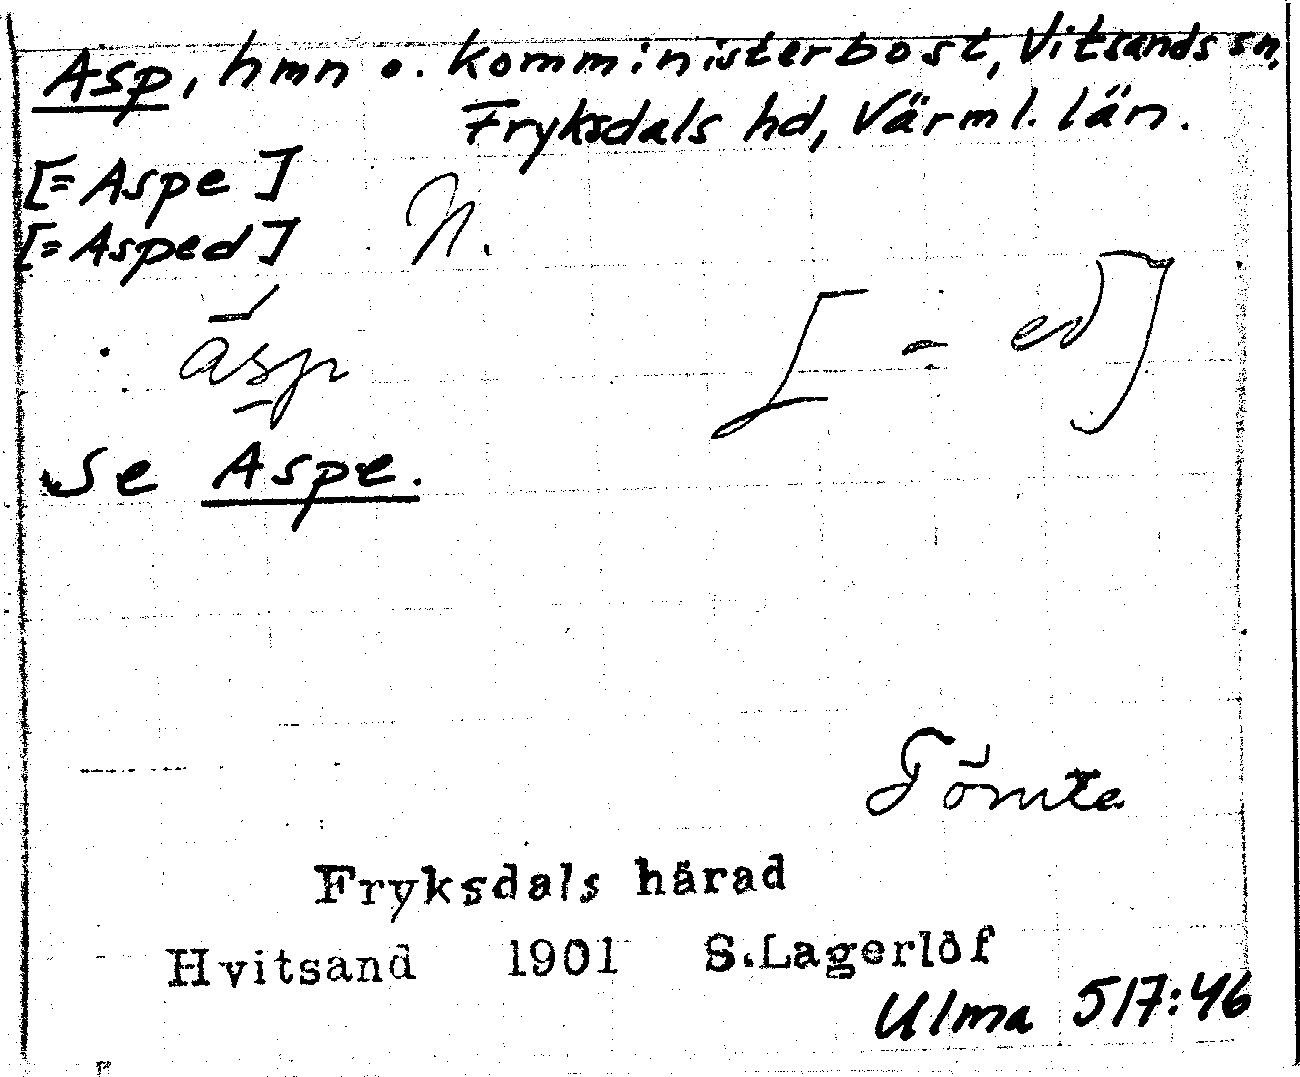 Asp, hmn o. komministerbost, Vitsands sn,
Fryksdals hd, Värml. län.
[= Aspe]
[= Asped] N.
asp [= ed]
Se Aspe.
Tömte
Fryksdals härad
Hvitsand 1901 S.Lagerlöf
Ulma 517:46